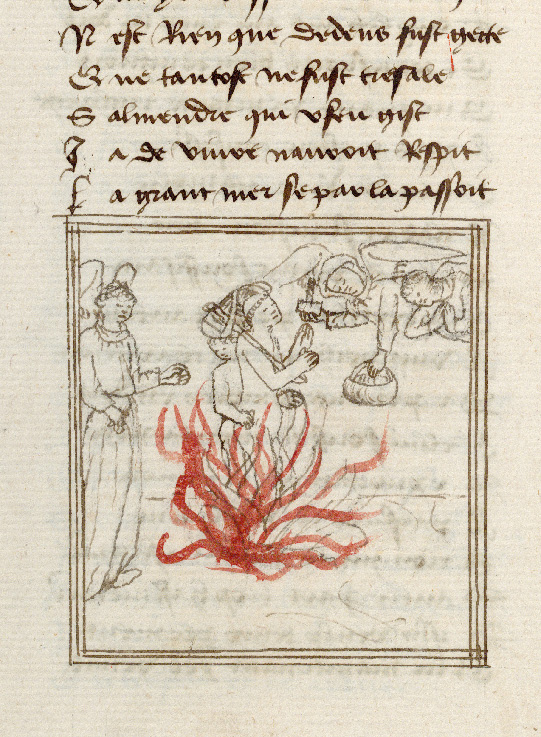 N est Rien que dedens fust gette
Q ue tantost ne fust tresale
S almendre qui en feu gist
J a de vivre nauroit Respit
L a grant mer se par la passoit